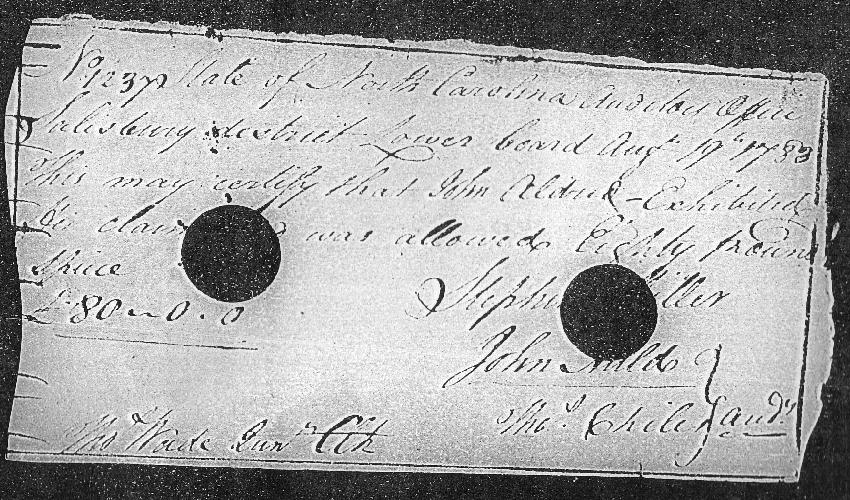 No 1237 State of North Carolina Auditors Office
Salisbury district Lower board Augt 19th 1783
This may certify that John Aldred Exhibited
his claim was allowed Eighty pounds
Specie
£80 - 0 - 0
Stephen Miller
John Auld
Thos Childs Auds
Tho Wade Junr Clk